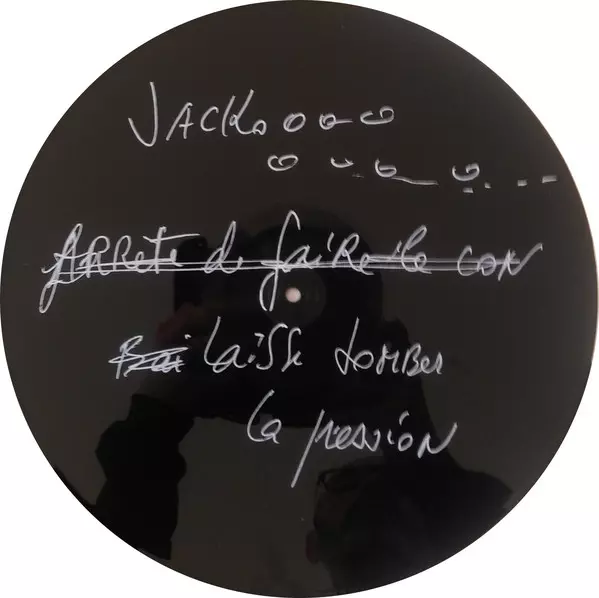 JACKOOOO
ARRETE de faire le CON
laisse tomber
la pression